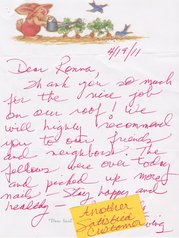 4/19/11
Dear Ronna,
Thank you so much
for the nice job
on our roof! We
will highly recommend
you to our friends
and neighbors. The
fellows were over today
and picked up more
nails. Stay happy and
healthy -
Another
Satisfied
Customer